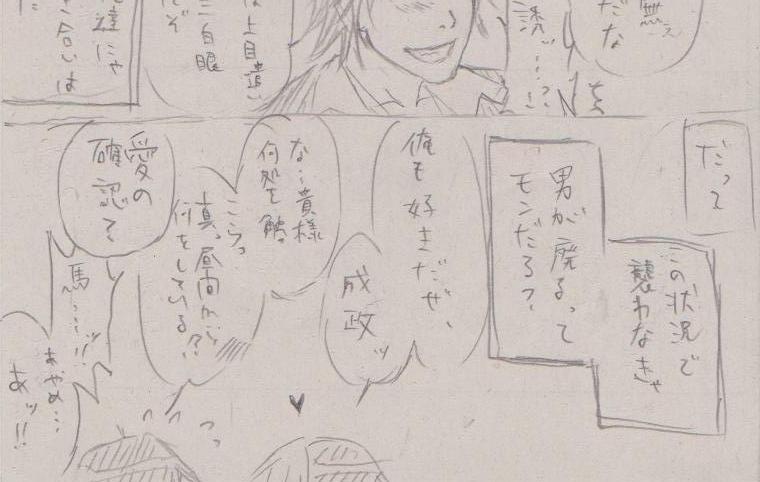 無え
だな
誘ッ…!?
は上目遣い
三白眼
だぞ
達にゃ
合いは
だって
この状況で
襲わなきゃ
男が廃るって
モンだろ?
俺も好きだぜ、
成政ッ
な…貴様
何処を触っ
こらっ
真っ昼間から
何をしている!?
愛の
確認て
馬ッ…!!
あやめ…
あッ!!